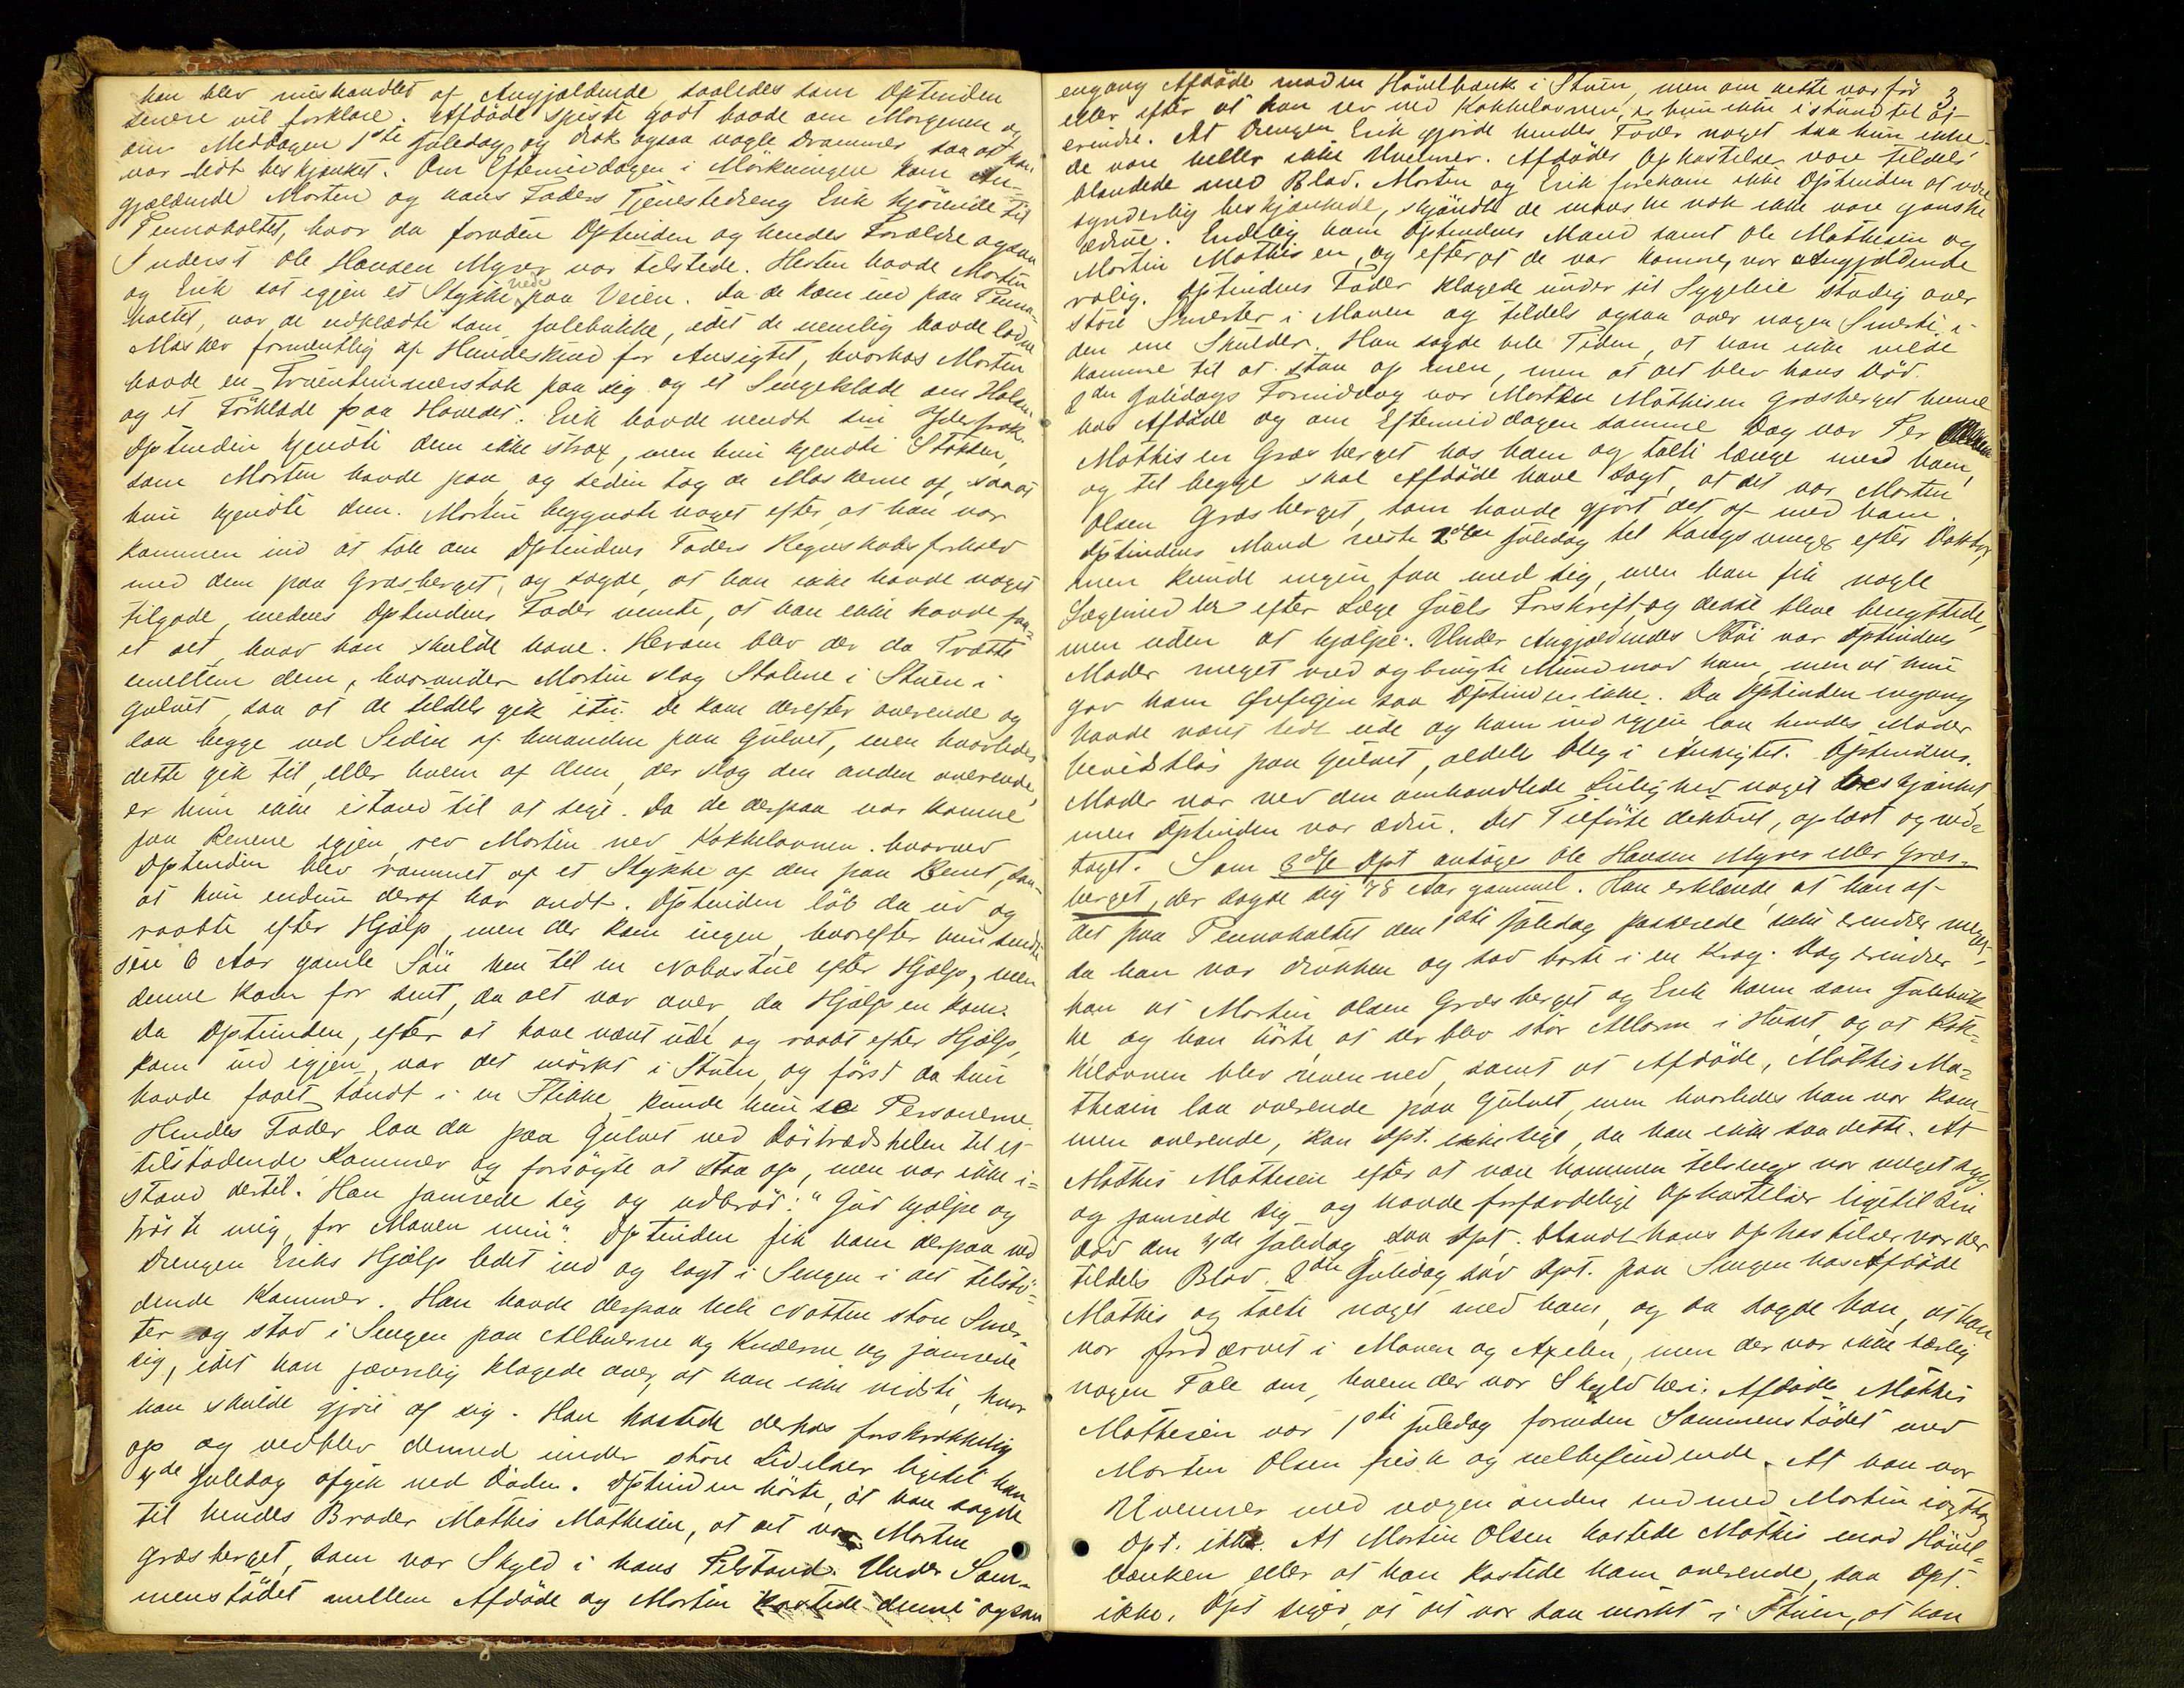 han blev mishandlet af Angjældende saaledes som Optinden
senere vil forklare. Afdøde spiste godt baade om Morgenen og
om Middagen 1ste Juledag og drak ogsaa nogle Drammer, saa at han
var lidt beskjænket. Om Eftermiddagen i Mørkningen kom An-
gjældende Morten og hans Faders Tjenestedreng Erik kjørende til
Tennaholtet, hvor da foruden Optinden og hendes Forældre ogsaa
Inderst Ole Hansen Myrer var tilstede. Hesten havde Morten
og Erik sat igjen et Stykke nede paa Veien. Da de kom ind paa Tenna-
holtet, var de udklædte som Julebukke, idet de nemlig havde lodne
Masker formentlig af Hundeskind for Ansigtet, hvorhos Morten
havde en Fruentimmerstak paa sig og et Sengeklæde om Halsen
og et Förklæde paa Hovedet. Erik havde vendt sin Yderfrak.
Optinden kjendte dem ikke strax, men hun kjendte Stakken,
som Morten havde paa, og siden tog de Maskerne af, saa at
hun kjendte dem. Morten begyndte noget efter at han var
kommen ind at tale om Optindens Faders Regnskabsforhold
med dem paa Græsberget, og sagde, at han ikke havde noget
tilgode, medens Optindens Fader mente, at han ikke havde faa-
et alt, hvad han skulde have. Herom blev der da Trætte
imellem dem, hvorunder Morten slog Stolene i Stuen i
Gulvet, saa at de tildels gik itu. De kom derefter overende og
laa begge ved Siden af hinanden paa Gulvet, men hvorledes
dette gik til, eller hvem af dem, der slog den anden overende,
er hun ikke istand til at sige. Da de derpaa var komne
paa Benene igjen rev Morten ned Kakkelovnen, hvorved
Optinden blev rammet af et Stykke af den paa Benet, saa-
at hun endnu deraf har ondt. Optinden løb da ud og
raabte efter Hjælp, men der kom ingen, hvorefter hun sendte
sin 6 Aar gamle Søn hen til en Nabostue efter Hjælp, men
denne kom for sent, da alt var over, da Hjælpen kom.
Da Optinden, efter at have været ude og raabt efter Hjælp,
kom ind igjen, var det mørkt i Stuen, og først da hun
havde faaet tændt i en Stikke kunde hun se Personerne.
Hendes Fader laa da paa Gulvet ved Dørtrædskelen til et
tilstødende Kammer og forsøgte at staa op, men var ikke i-
stand dertil. Han jamrede sig og udbrød: "Gud hjælpe og
trøste mig, for Maven min". Optinden fik ham derpaa ved
Drengen Eriks Hjælp ledet ind og lagt i Sengen i det tilstø-
dende Kammer. Han havde derpaa hele Natten store Smer-
ter og stod i Sengen paa Albuerne og Knæerne og jamrede
sig, idet han jævnlig klagede over, at han ikke vidste, hvor
han skulde gjøre af sig. Han kastede derhos forskrækkelig
op og vedblev dermed under store Lidelser ligetil han
4de Juledag afgik ved Døden. Optinden hørte, at han sagde
til hendes Broder Mathis Mathesen, at det var Morten
Græsberget, som var Skyld i hans Tilstand. Under Sam-
menstødet mellem Afdøde og Morten kastede denne ogsaa
3
engang Afdøde mod en Høvelbænk i Stuen, men om dette var før
eller efter at han rev ned Kakkelovnen, er hun ikke istand til at
erindre. At Drengen Erik gjorde hendes Fader noget saa hun ikke.
De vare heller ikke Uvenner. Afdødes Opkastelser vare tildels
blandede med Blod. Morten og Erik forekom ikke Optinden at være
synderlig beskjænkede, skjøndt de maaske nok ikke vare ganske
ædrue. Endelig kom Optindens Mand samt Ole Mathisen og
Morten Mathisen, og efterat de var komne, var Angjældende
rolig. Optindens Fader klagede under sit Sygeleie stadig over
store Smerter i Maven og tildels ogsaa over nogen Smerte i
den ene Skulder. Han sagde hele Tiden, at han ikke vilde
komme til at staa op mere, men at det blev hans Død.
2den Juledags Formiddag var Morten Mathisen Græsberget henne
hos Afdøde og om Eftermiddagen samme Dag var Per
Mathisen Græsberget hos ham og talte længe med ham,
og til begge skal Afdøde have sagt, at det var Morten
Olsen Græsberget, som havde gjort det af med ham.
Optindens Mand reiste 2den Juledag til Kongsvinger efter Doktor,
men kunde ingen faa med sig, men han fik nogle
Lægemidler efter Læge Juels Forskrift, og disse bleve benyttede,
men uden at hjælpe. Under Angjældendes Støi var Optindens
Moder meget vred og brugte Mund mod ham, men at hun
gav ham Ørefigen saa Optinden ikke. Da Optinden engang
havde været lidt ude og kom ind igjen laa hendes Moder
bevidstløs paa Gulvet, aldeles bleg i Ansigtet. Optindens
Moder var ved den omhandlede Leilighed noget beskjænket,
men Optinden var ædru. Det Tilførte dikteret, oplæst og ved-
taget. Som 3die Dpt antoges Ole Hansen Myrer eller Græs-
berget, der sagde sig 78 Aar gammel. Han erklærede, at han af
det paa Tennaholtet den 1ste Juledag passerede ikke erindrer meget,
da han var drukken og sad borte i en Krog. Dog erindrer
han at Morten Olsen Græsberget og Erik kom som Julebuk-
ke og han hørte, at der blev stor Allarm i Huset, og at Kak-
kelovnen blev reven ned, samt at Afdøde, Mathis Ma-
thesen laa overende paa Gulvet, men hvorledes han var kom-
men overende, kan Dpt. ikke sige, da han ikke saa dette. At
Mathis Mathesen efter at være kommen tilsengs var meget syg
og jamrede sig og havde forfærdelige Opkastelser ligetil sin
Død den 4de Juledag saa Dpt. Blandt hans Opkastelser var der
tildels Blod. 2den Juledag sad Dpt. paa Sengen hos Afdøde
Mathis og talte noget med ham, og da sagde han, at han
var fordærvet i Maven og Axelen, men der var ikke særlig
nogen Tale om, hvem der var Skyld heri. Afdøde Mathis
Mathesen var 1ste Juledag forinden Sammenstødet med
Morten Olsen frisk og velbefindende. At han var
Uvenner med nogen anden end med Morten
Dpt. ikke. At Morten Olsen kastede Mathis mod Høvel-
bænken eller at han kastede ham overende, saa Dpt.
ikke. Dpt siger, at det var saa mørkt i Stuen, at han